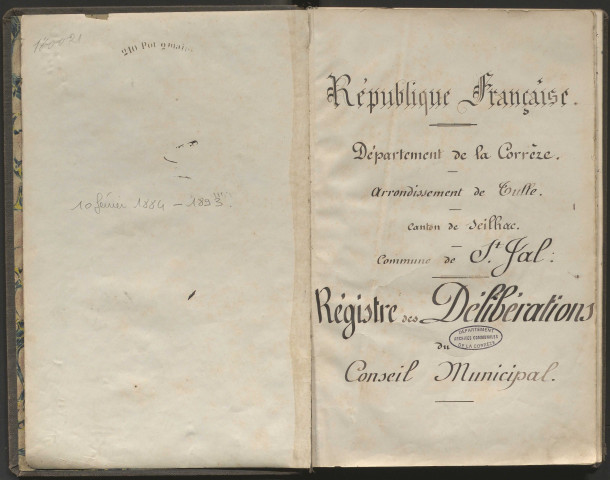 210 Pot 2 main
10 février 1884 - 1893
République Française.
Département de la Corrèze.
Arrondissement de Tulle.
Canton de Seilhac.
Commune de St Jal:
Régistre des Délibérations
du
DÉPARTEMENT
ARCHIVES COMMUNALES
DE LA CORRÈZE
Conseil Municipal.